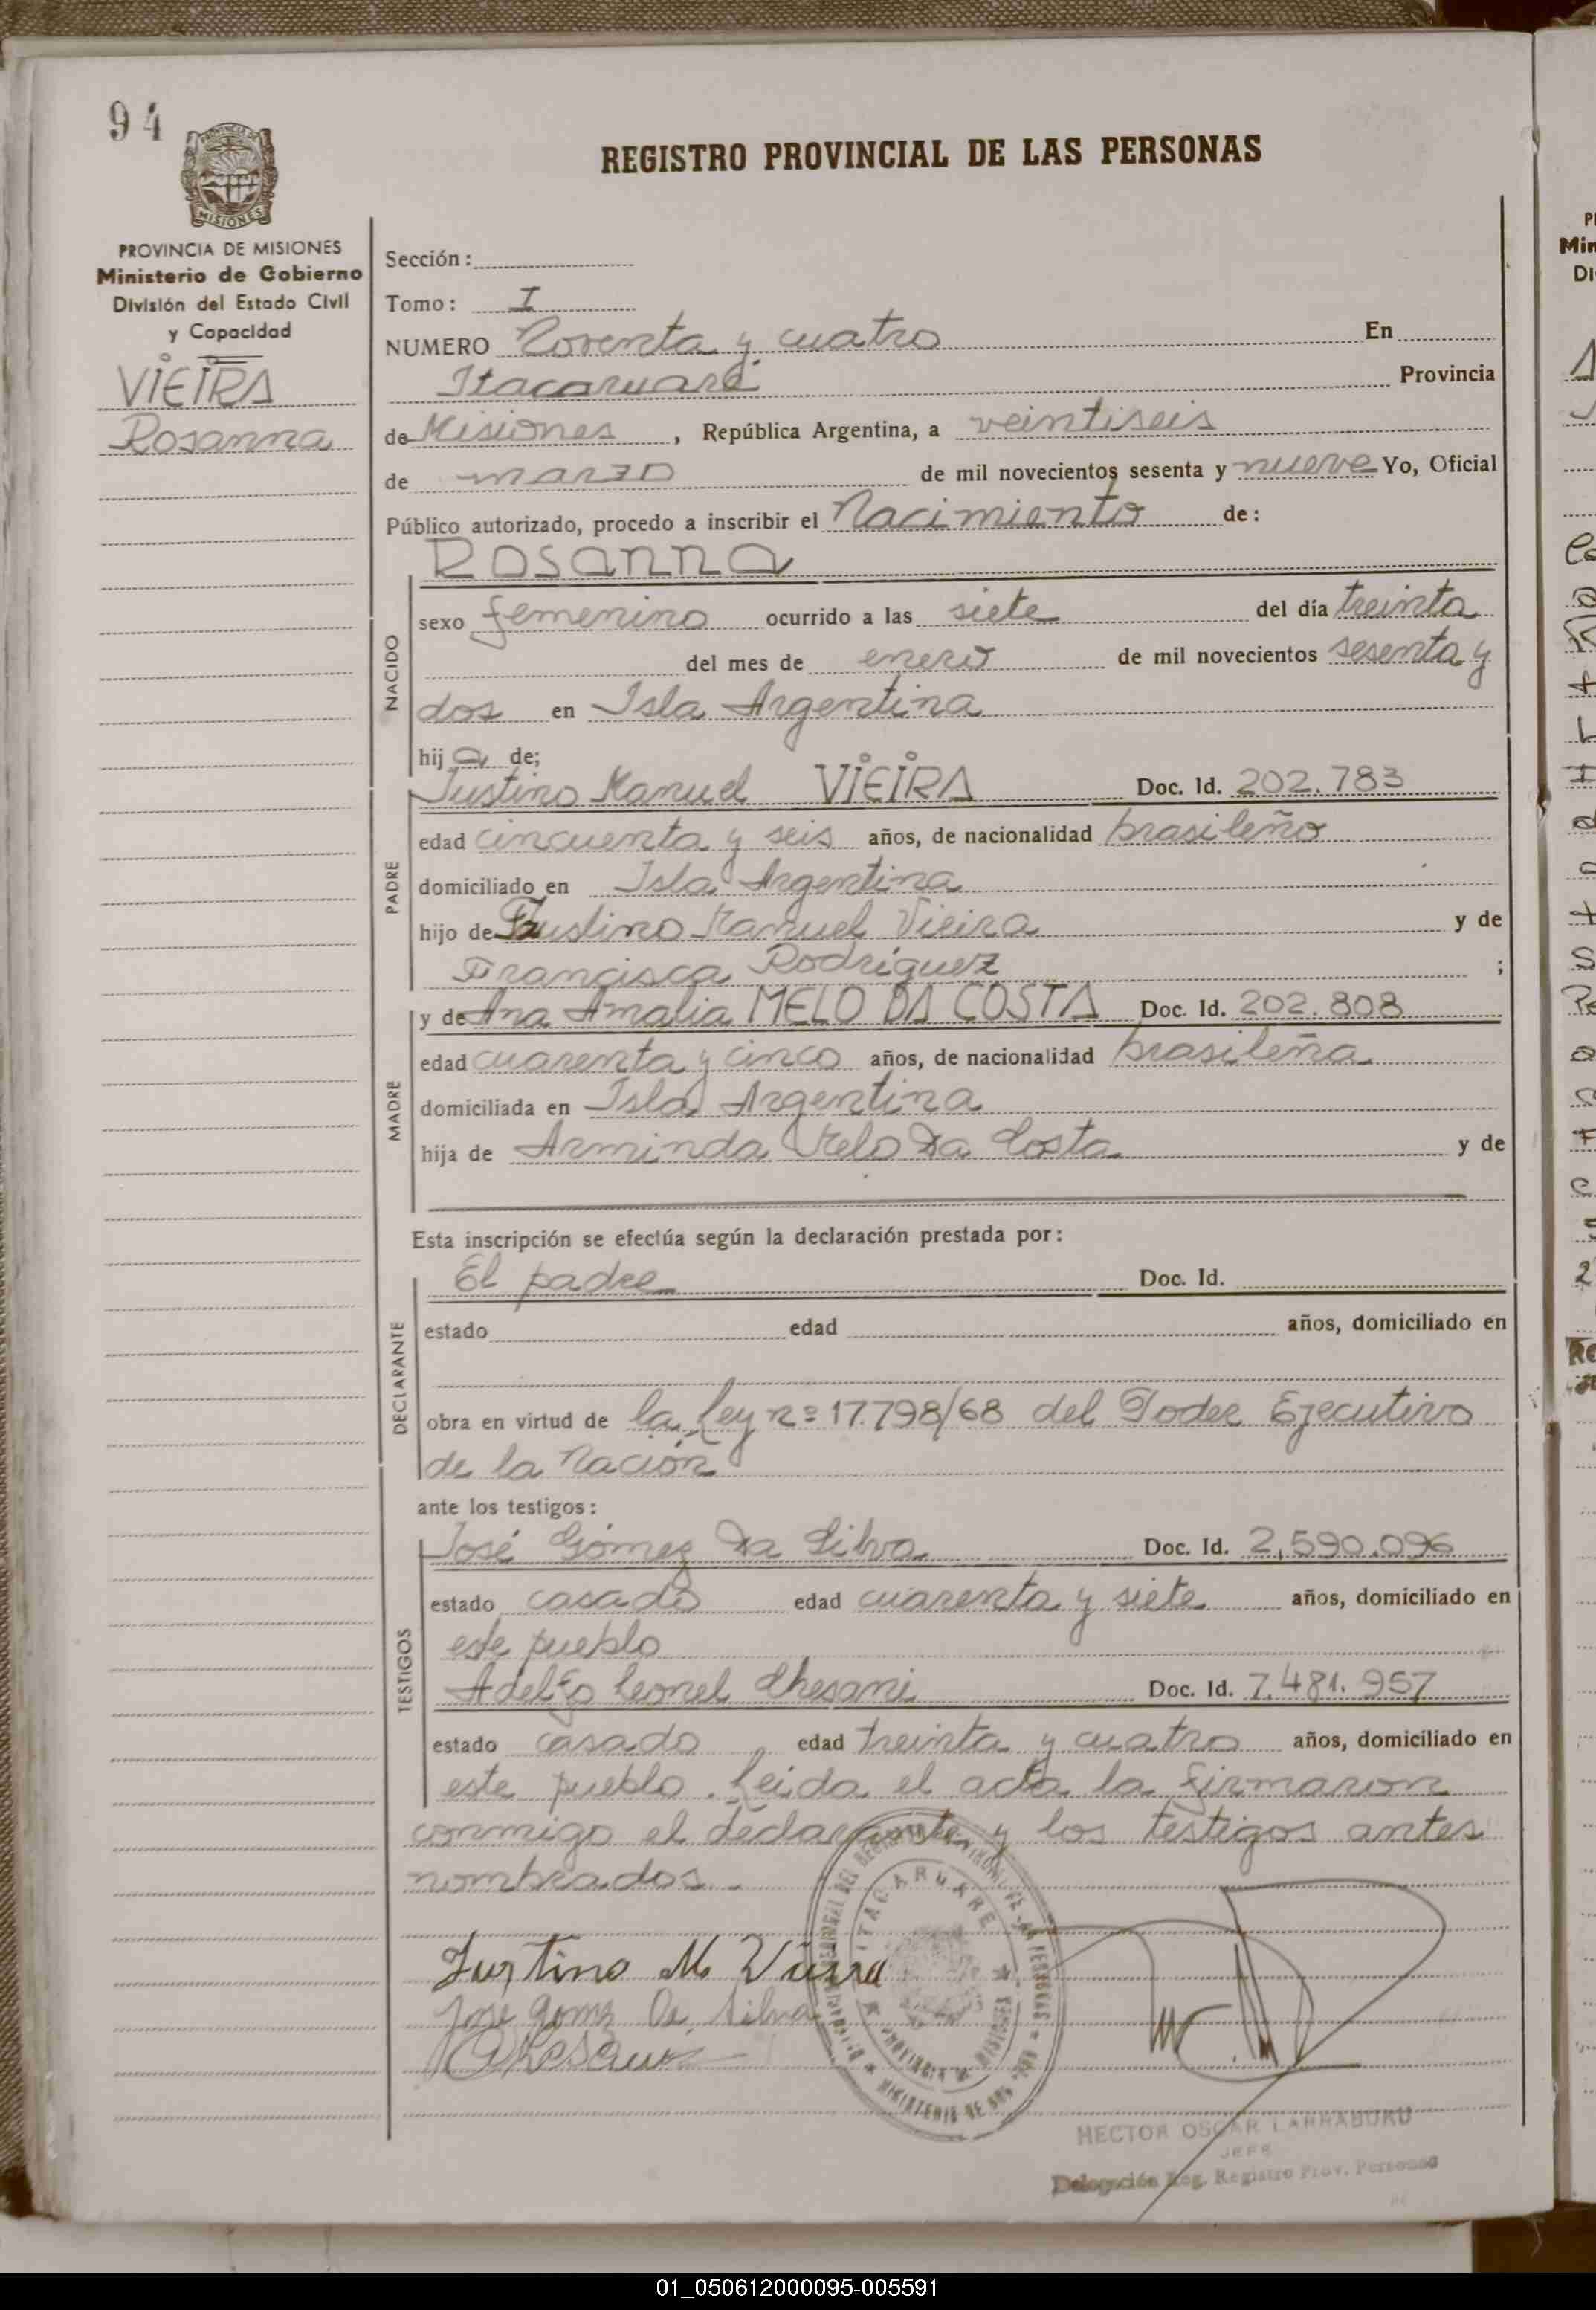 94
PROVINCIA DE
MISIONES
REGISTRO PROVINCIAL DE LAS PERSONAS
PROVINCIA DE MISIONES
Ministerio de Gobierno
División del Estado Civil
y Capacidad
VIEIRA
Rosanna
Sección:
Tomo: I
NUMERO Noventa y cuatro En
Itacaruaré Provincia
de Misiones, República Argentina, a veintiseis
de marzo de mil novecientos sesenta y nueve Yo, Oficial
Público autorizado, procedo a inscribir el Nacimiento de:
Rosanna
NACIDO
sexo femenino ocurrido a las siete del día treinta
del mes de enero de mil novecientos sesenta y
dos en Isla Argentina
hija de;
PADRE
Justino Manuel VIEIRA Doc. Id. 202.783
edad cincuenta y seis años, de nacionalidad brasileño
domiciliado en Isla Argentina
hijo de Faustino Manuel Vieira y de
Francisca Rodríguez ;
MADRE
y de Ana Amalia MELO DA COSTA Doc. Id. 202.808
edad cuarenta y cinco años, de nacionalidad brasileña
domiciliada en Isla Argentina
hija de Arminda Melo Da Costa y de
Esta inscripción se efectúa según la declaración prestada por:
DECLARANTE
El padre Doc. Id.
estado edad años, domiciliado en
obra en virtud de la Ley nº 17.798/68 del Poder Ejecutivo
de la Nación
ante los testigos:
TESTIGOS
José Gómez Da Silva Doc. Id. 2,590.096
estado casado edad cuarenta y siete años, domiciliado en
este pueblo
Adelfo Leonel Chesani Doc. Id. 7.481.957
estado casado edad treinta y cuatro años, domiciliado en
este pueblo. Leida el acta la firmaron
conmigo el declarante y los testigos antes
nombrados.-
ITACARUARE
PROVINCIA DE MISIONES
Justino M Vieira
Jose Gomz Da Silva
HECTOR OSCAR LARRABURU
JEFE
Delegación Reg. Registro Prov. Personas
01_050612000095-005591